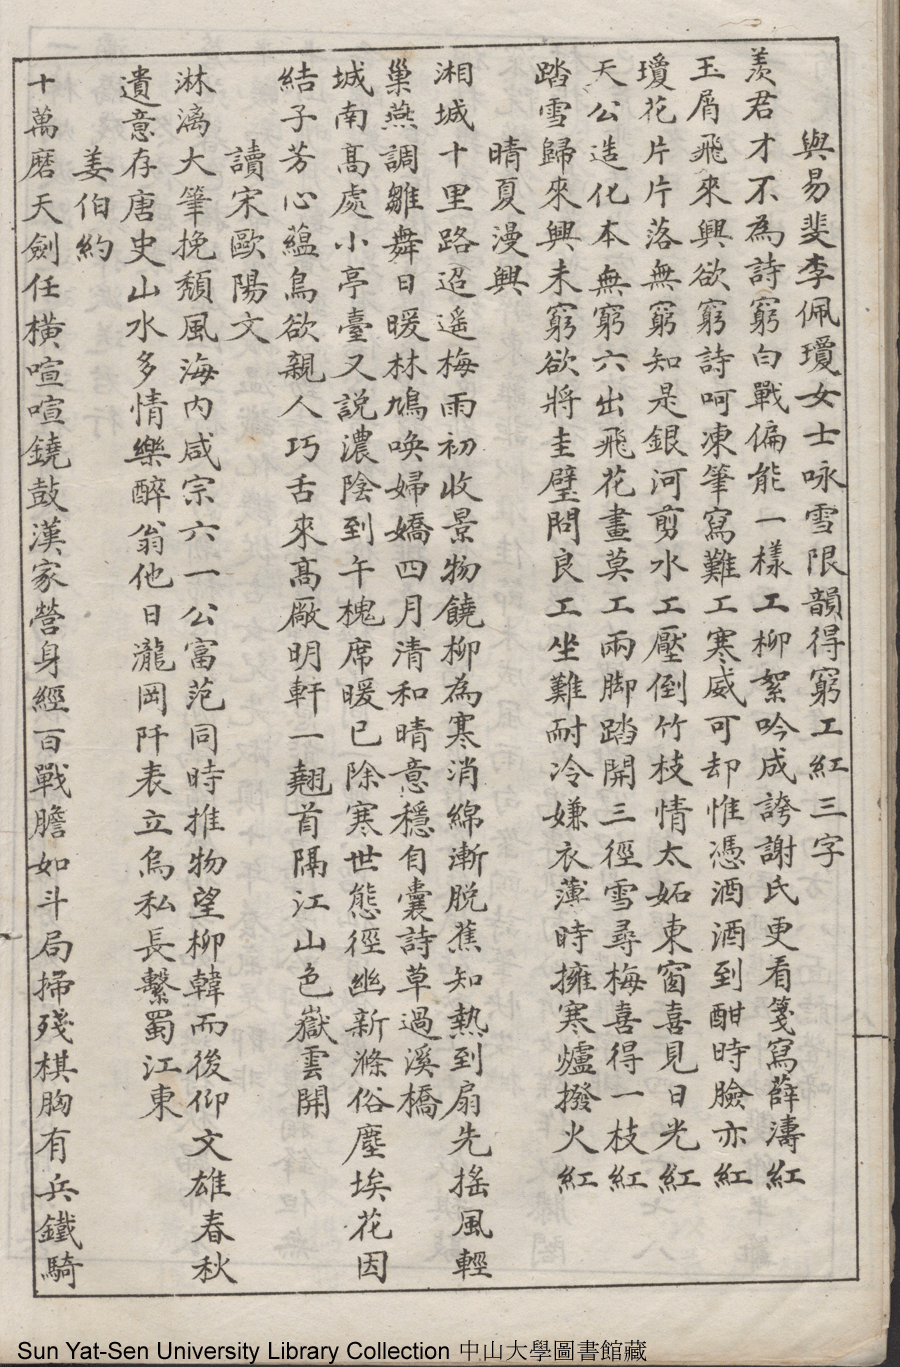 與易斐李佩瓊女士咏雪限韻得窮工紅三字
羨君才不為詩窮白戰偏能一樣工柳絮吟成誇謝氏更看箋寫薛濤紅
玉屑飛來興欲窮詩呵凍筆寫難工寒威可却惟憑酒酒到酣時臉亦紅
瓊花片片落無窮知是銀河剪水工壓倒竹枝情太妬東窗喜見日光紅
天公造化本無窮六出飛花畫莫工兩脚踏開三徑雪尋梅喜得一枝紅
踏雪歸來興未窮欲將圭璧問良工坐難耐冷嫌衣薄時擁寒爐撥火紅
晴夏漫興
湘城十里路迢遥梅雨初收景物饒柳為寒消綿漸脱蕉知熱到扇先搖風輕
巢燕調雛舞日暖林鳩喚婦嬌四月清和晴意穩自囊詩草過溪橋
城南高處小亭臺又説濃陰到午槐席暖已除寒世態徑幽新滌俗塵埃花因
結子芳心藴鳥欲親人巧舌來高厰明軒一翹首隔江山色嶽雲開
讀宋歐陽文
淋漓大筆挽頹風海内咸宗六一公富范同時推物望柳韓而後仰文雄春秋
遺意存唐史山水多情樂醉翁他日瀧岡阡表立烏私長繫蜀江東
姜伯約
十萬磨天劍任橫喧喧鐃鼓漢家營身經百戰膽如斗局掃殘棋胸有兵鐵騎
Sun Yat-Sen University Library Collection 中山大學圖書館藏